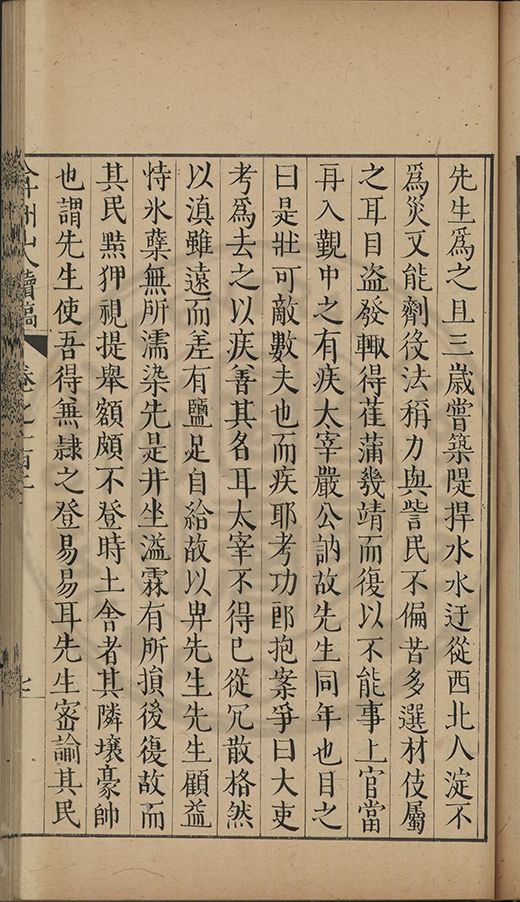 先生爲之且三歲嘗築隄捍水水迂從西北入淀不
爲災又能劑役法稱力與訾民不偏苦多選材伎屬
之耳目盗發輙得萑蒲幾靖而復以不能事上官當
再入覲中之有疾太宰嚴公訥故先生同年也目之
曰是壯可敵數夫也而疾耶考功郎抱案爭曰大吏
考爲去之以疾善其名耳太宰不得已從冗散格然
以滇雖遠而差有鹽足自給故以畀先生先生顧益
恃氷蘖無所濡染先是井坐溢霖有所損後復故而
其民黠狎視提舉額頗不登時土舍者其隣壤豪帥
也謂先生使吾得無隷之登易易耳先生密諭其民
弇州山人續稿 卷之一百二 七